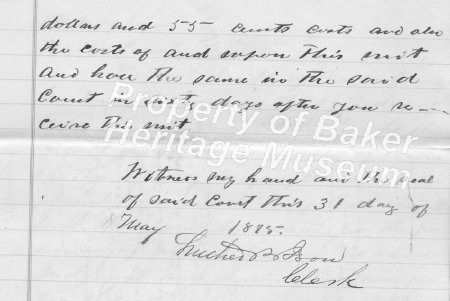 dollars and 55 cents costs and also
the costs of and upon this writ
and have the same in the said
Court in sixty days after you re-
ceive this writ
Property of Baker
Heritage Museum
Witness my hand and the seal
of said Court this 31 day of
May 1875.
Clerk